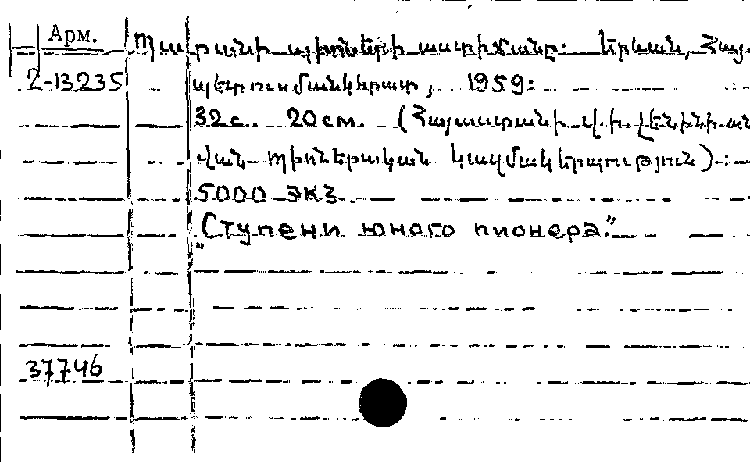 Арм.
Պատանի պիոների աստիճանը: Երևան, Հայ-
2-13235
պետուսմանկհրատ, 1959:
32с. 20см. (Հայաստանի Վ.Ի. Լենինի ան-
վան պիոներական կազմակերպություն):
5000 экз
"Ступени юного пионера."
37746